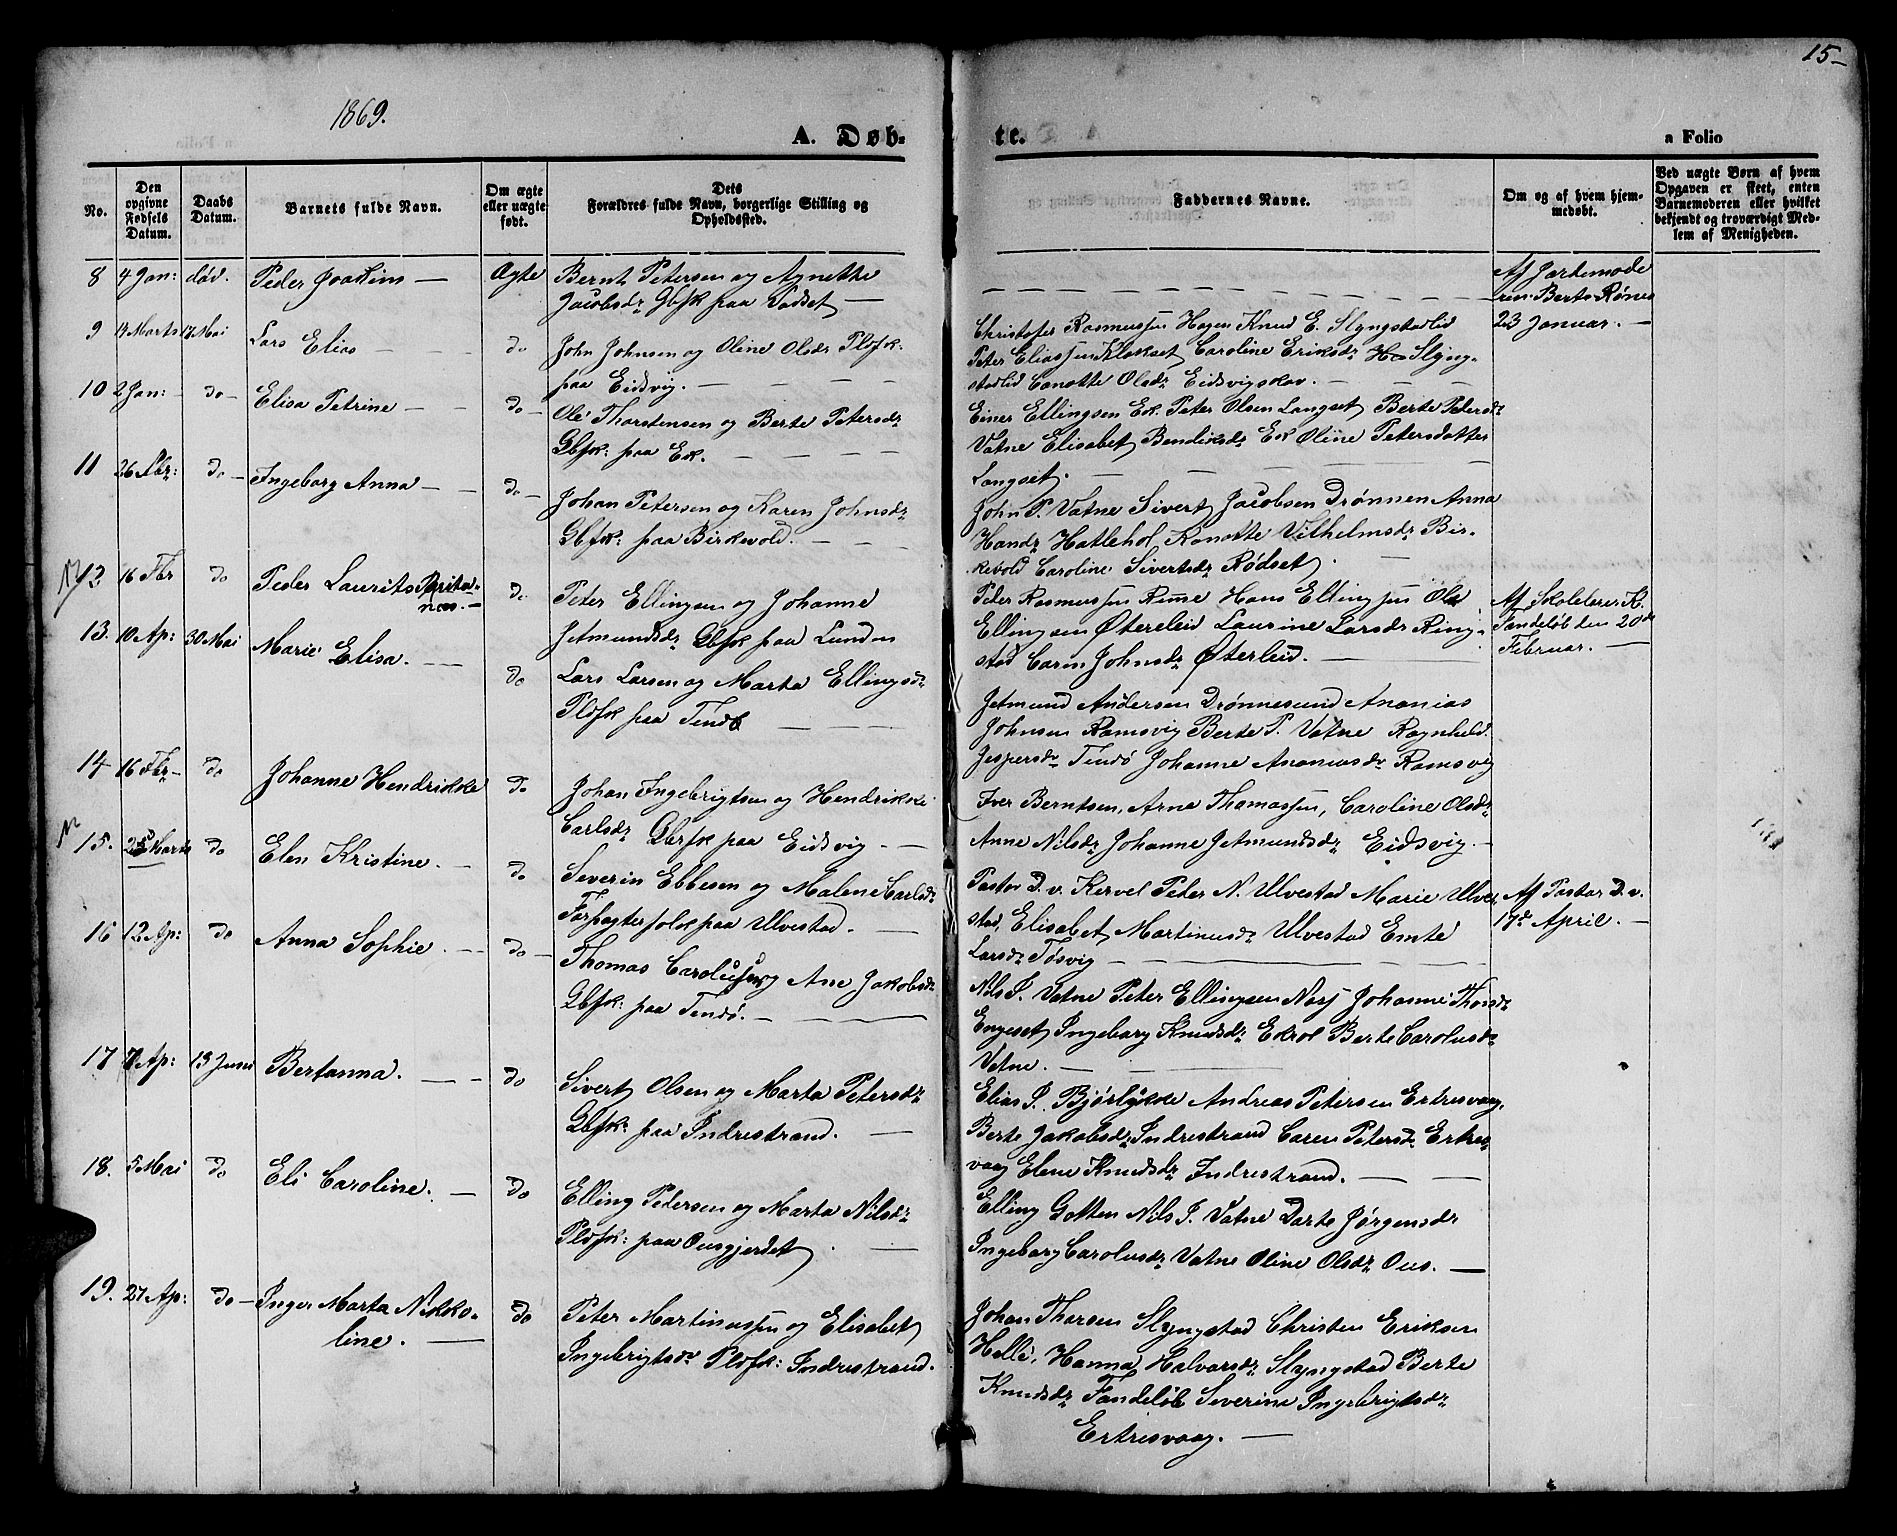 15-
1869.
A. Døb-
te.
a Folio
No.
Den opgivne Fødsels Datum.
Daabs Datum.
Barnets fulde Navn.
Om ægte eller uægte født.
Dets Forældres fulde Navn, borgerlige Stilling og Opholdssted.
Faddernes Navne.
Om og af hvem hjemmedøbt.
Ved uægte Børn af hvem Opgaven er skeet, enten Barnemoderen eller hvilket bekjendt og troværdigt Medlem af Menigheden.
8 4 Jan: død. Peder Joakim — Ægte Bernt Petersen og Agnette
Jacobsdr Gbfk paa Vadset —
Af Jordemode
ren Berte Rönes
23 Januar. —
9 14 Marts 17 Mai Lars Elias — — do John Johnsen og Oline Olsdr Pldfk:
paa Eidsvig. — — — —
Christofer Rasmussen Hagen Knud E. Slyngstadlid
Peter Eliassen Klokset Caroline Eriksdr Slyng-
stadlid Canotte Olsdr Eidsvigskar. —
10 2 Jan: — do — Elisa Petrine — — do — Ole Thorstensen og Berte Petersdr
Gbfk: paa Ek. — — — —
Einer Ellingsen Ek. Peter Olsen Langset Berte Pedersdr
Vatne Elisabet Bendiksdr Ek Oline Petersdatter
Langset. — — — — —
11 26 Fbr: do — Ingeborg Anna — — do — Johan Petersen og Karen Johnsdr
Gbfk: paa Birkevold. — — —
John P. Vatne Sivert Jacobsen Drönnen Anna
Hansdr Hatlehol, Kanotte Vilhelmsdr Bir-
kevold Caroline Sivertsdr Rödset. —
12 16 Fbr do Peder Laurits
do Peter Ellingsen og Johanne
Jetmundsdr Gbfk paa Lunden
Peder Rasmussen Rime Hans Ellingsen Ole
Ellingsen Österleid Laurine Larsdr Ring-
stad Caren Johnsdr Österleid. —
Af Skolelærer K.
Tandeløb den 20de
Februar. —
13. 10 Ap: 30 Mai Marie Elisa. — — do Lars Larsen og Marta Ellingsdr
Pldfk paa Tendö — —
Jetmund Andersen Drönnesund Ananias
Johnsen Ramsvig Berte P. Vatne Ragnheld
Jespersdr Tendö Johanne Ananiasdr Ramsvig
14 16 Fbr — do Johanne Hendrikke do Johan Ingebrigtsen og Hendrikke
Carlsdr Gbfk paa Eidsvig — —
Iver Berntsen, Arne Thomassen, Caroline Olsdr
Anne Nilsdr Johanne Jetmundsdr Eidsvig. —
15. 25 Marts do Elen Kristine. — do Severin Ebbesen og Malene Carlsdr
Forpagterfolk paa Ulvestad. —
Pastor D. v. Kervel Peter N. Ulvestad Marie Ulve-
stad, Elisabet Martinusdr Ulvestad Emte
Larsdr Tösvig — —
Af Pastor D. v.
17de April. —
16 12 Ap: do Anna Sophie. — — do — Thomas Carolussen og Ane Jakobsdr
Gbfk: paa Tendö. — —
Nils P. Vatne Peter Ellingsen Nosj Johanne Thomsdr
Engeset Ingeborg Knudsdr Ekrol Berte Carolusdr
Vatne. — —
17 7 Ap: 13 Juni Bertanna. — — do Sivert Olsen og Marta Petersdr
Gbfk: paa Indrestrand. —
Elias P. Bjørlykke Andreas Petersen Ertresvaag,
Berte Jakobsdr Indrestrand Caren Petersd. Ertres-
vaag Elene Knudsdr Indrestrand. — —
18. 5 Mai do Eli Caroline. — do Elling Petersen og Marta Nilsdr
Pldfk: paa Ousgjerdet. —
Elling Gotten Nils P. Vatne Darte Jørgensdr
Ingeborg Carolusdr Vatne Oline Olsdr Ous. —
19. 27 Ap: do — Inger Marta Nikko-
line. — do Peter Martinussen og Elisabet
Ingebrigtsdr Pldfk: Indrestrand.
Johan Thorsen Slyngstad Christen Eriksen
Helle, Hanna Halvarsdr Slyngstad Berte
Knudsdr Tandeløb Severine Ingebrigtsdr
Ertresvaag. —